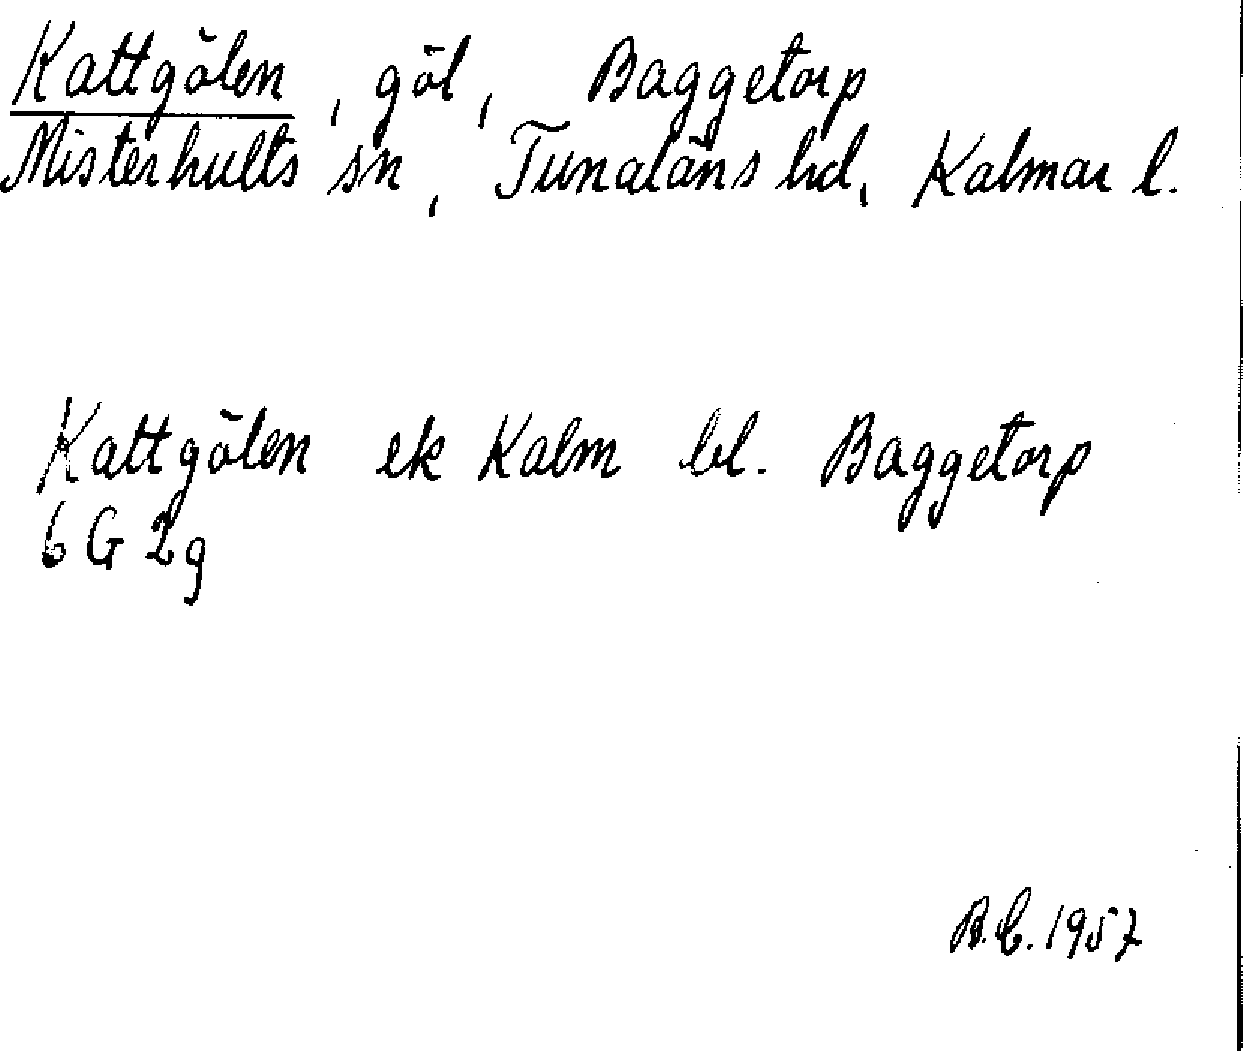 Kattgölen, göl, Baggetorp
Misterhults sn, Tunaläns hd, Kalmar l.
Kattgölen ek Kalm bl. Baggetorp
6 G 2g
B.C. 1957